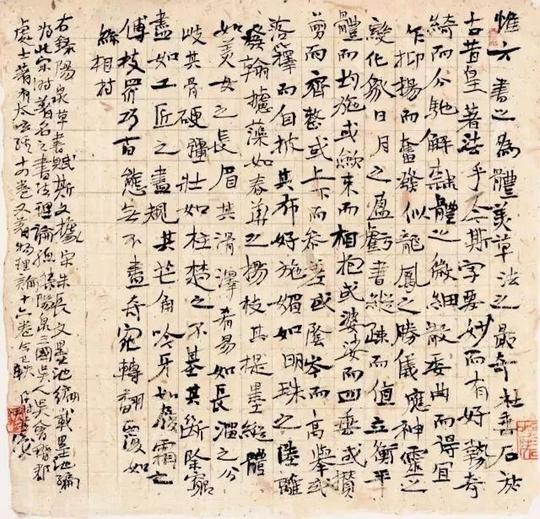 惟六書之為體美草法之最奇杜垂名於
古昔皇著法乎今斯字要妙而有好勢奇
綺而分馳解隸體之微細散委曲而得宜
乍抑揚而奮發似龍鳳之勝儀應神靈之
變化象日月之盈虧書縱竦而值立衡平
體而均施或斂束而相抱或婆娑而四垂或攢
剪而齊整或上下而參差或陰岑而高舉或
落籜而自披其布好施媚如明珠之陸離
發翰攄藻如春華之揚枝其提墨縱體
如美女之長眉其滑澤肴易如長溜之分
歧其骨硬彊壯如柱楚之不基其斷除窮
盡如工匠之盡規其芒角吟牙如嚴霜之
傅枝眾巧百態無不盡奇宛轉翻覆如
絲相持
右錄陽泉草書賦斯文據宋朱長文墨池編載墨池編
為北宋時著名之書法理論陽泉三國吳人吳會稽郡
處士著有太玄經十四卷又著物理論十六卷今已軼